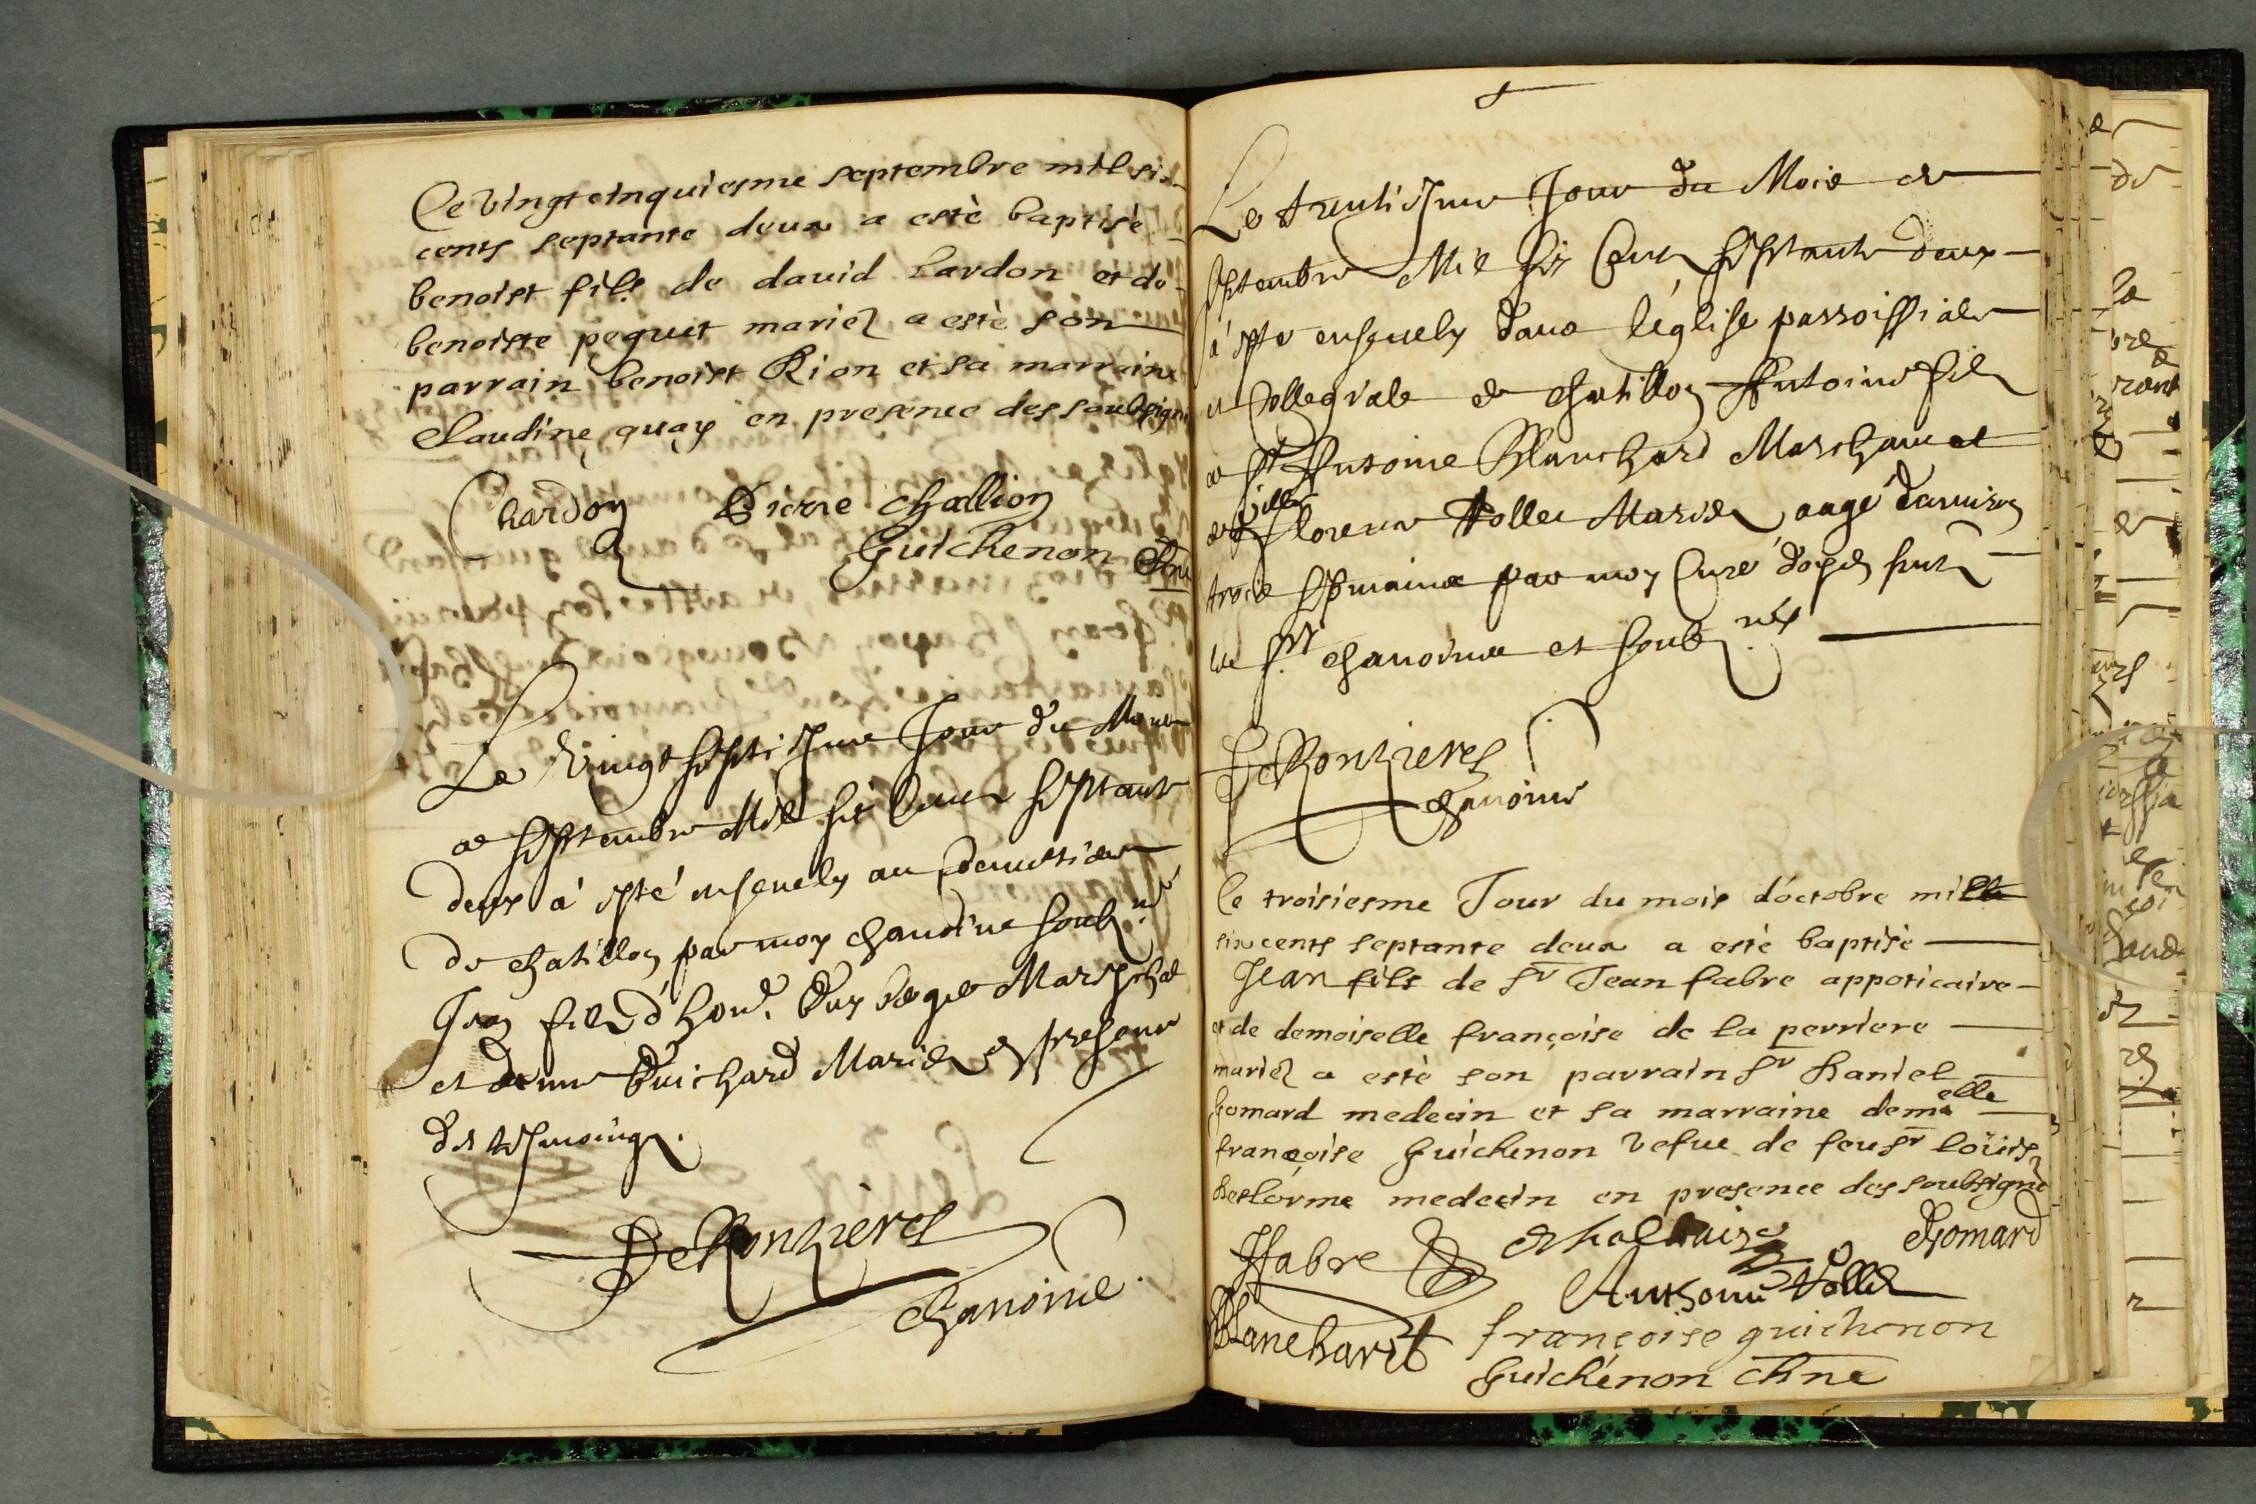 Ce vingtcinquiesme septembre mil six
cents septante deux a estè baptisè
benoist fils de david Lardon et de
benoiste pequet mariez a estè son
parrain benoist Rion et sa marraine
Claudine quay en presence des soubsignes
Chardon Pierre Challion
Guichenon Chne
Le Vingt septiesme Jour du Mois
de septembre Mil six Cents septante
deux à esté ensevely au Cemetiere
de chatillon par moy chanoine soubz.né
Jean fils d'hon.
et Guichard Mariez en presence
des tesmoings.
DeRonzieres
Chanoine
Le trentiesme Jour du Mois de
septembre Mil six Cents septante deux
à esté ensevely dans l'église parroissiale
et Collegiale de chatillon Anthoine fils
de sr Anthoine Blanchard Marchand et
de dlle florence Vollet Mariez aagé d'environ
trois sepmaines par moy Curé d'oyen
les srs chanoines et soubz.nés
DeRonzieres
chanoine
le troisiesme Jour du mois d'octobre mille
six cents septante deux a estè baptisè
Jean fils de sr Jean fabre appoticaire
et de demoiselle françoise de la perriere
mariez a estè son parrain sr Daniel
Gomard medecin et sa marraine demelle
françoise Guichenon vefue de feu sr loüis
Deslorme medecin en presence des soubsignes
Fabre Gomard
Anthoine Vollet
Blanchard françoise guichenon
Guichenon chne